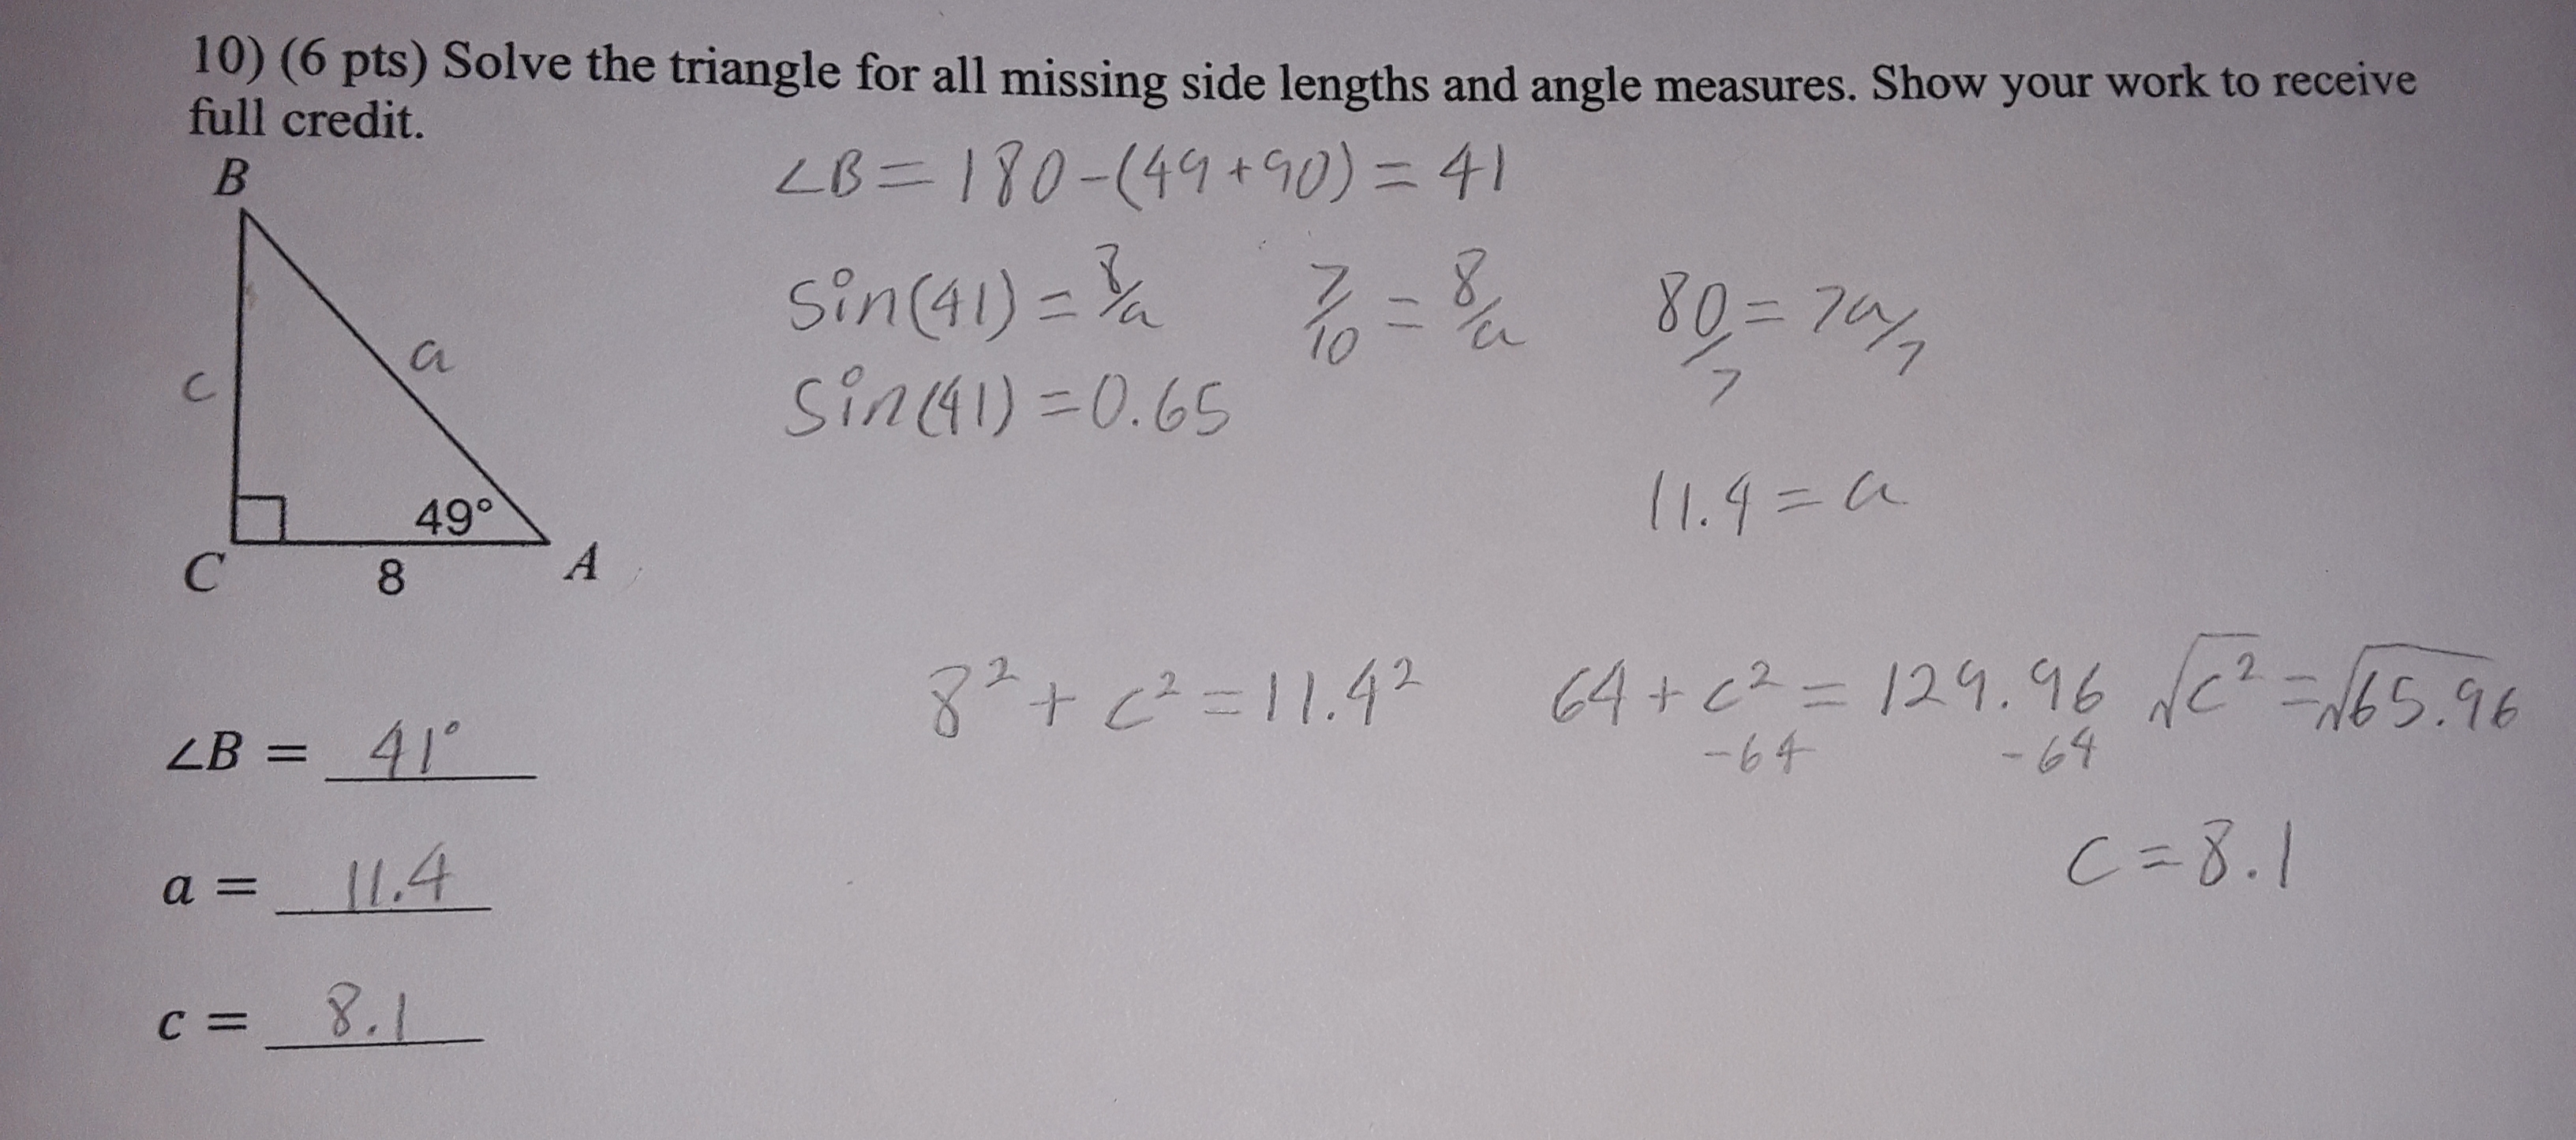 10) (6 pts) Solve the triangle for all missing side lengths and angle measures. Show your work to receive
full credit.
B
∠B = 180-(49+90) = 41
sin(41) = 8/a
7/10 = 8/a
80/7 = 7a/7
sin(41) = 0.65
a
c
11.4 = a
49°
C
8
A
8² + c² = 11.4²
64 + c² = 129.96
-64 -64
√c² = √65.96
c = 8.1
∠B = 41°
a = 11.4
c = 8.1